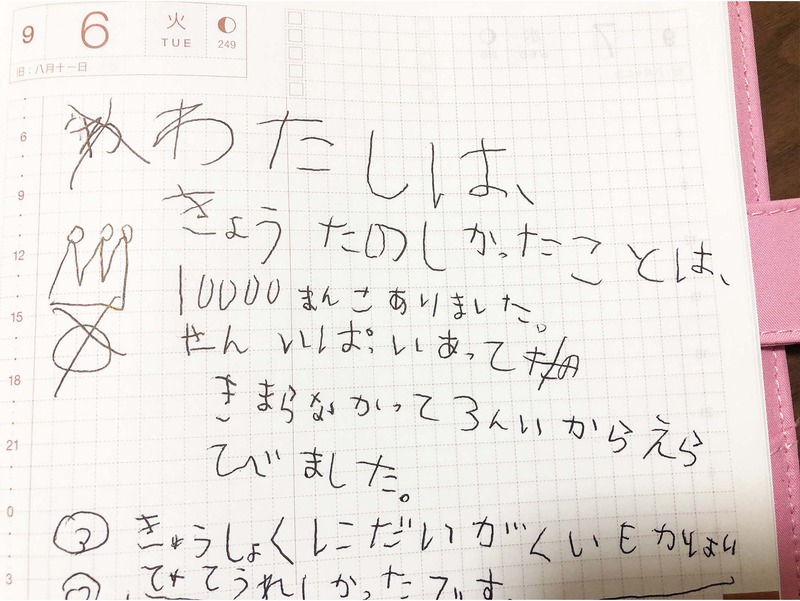 9 6 火 TUE 249
旧：八月十一日
6
わたしは、
9
きょう たのしかったことは、
12
10000まんこありました。
15
せん いぱいあって
18
きまらなかって3んいからえら
21
べました。
0
きゅうしょくにだいがくいも
3
てうれしかったです。